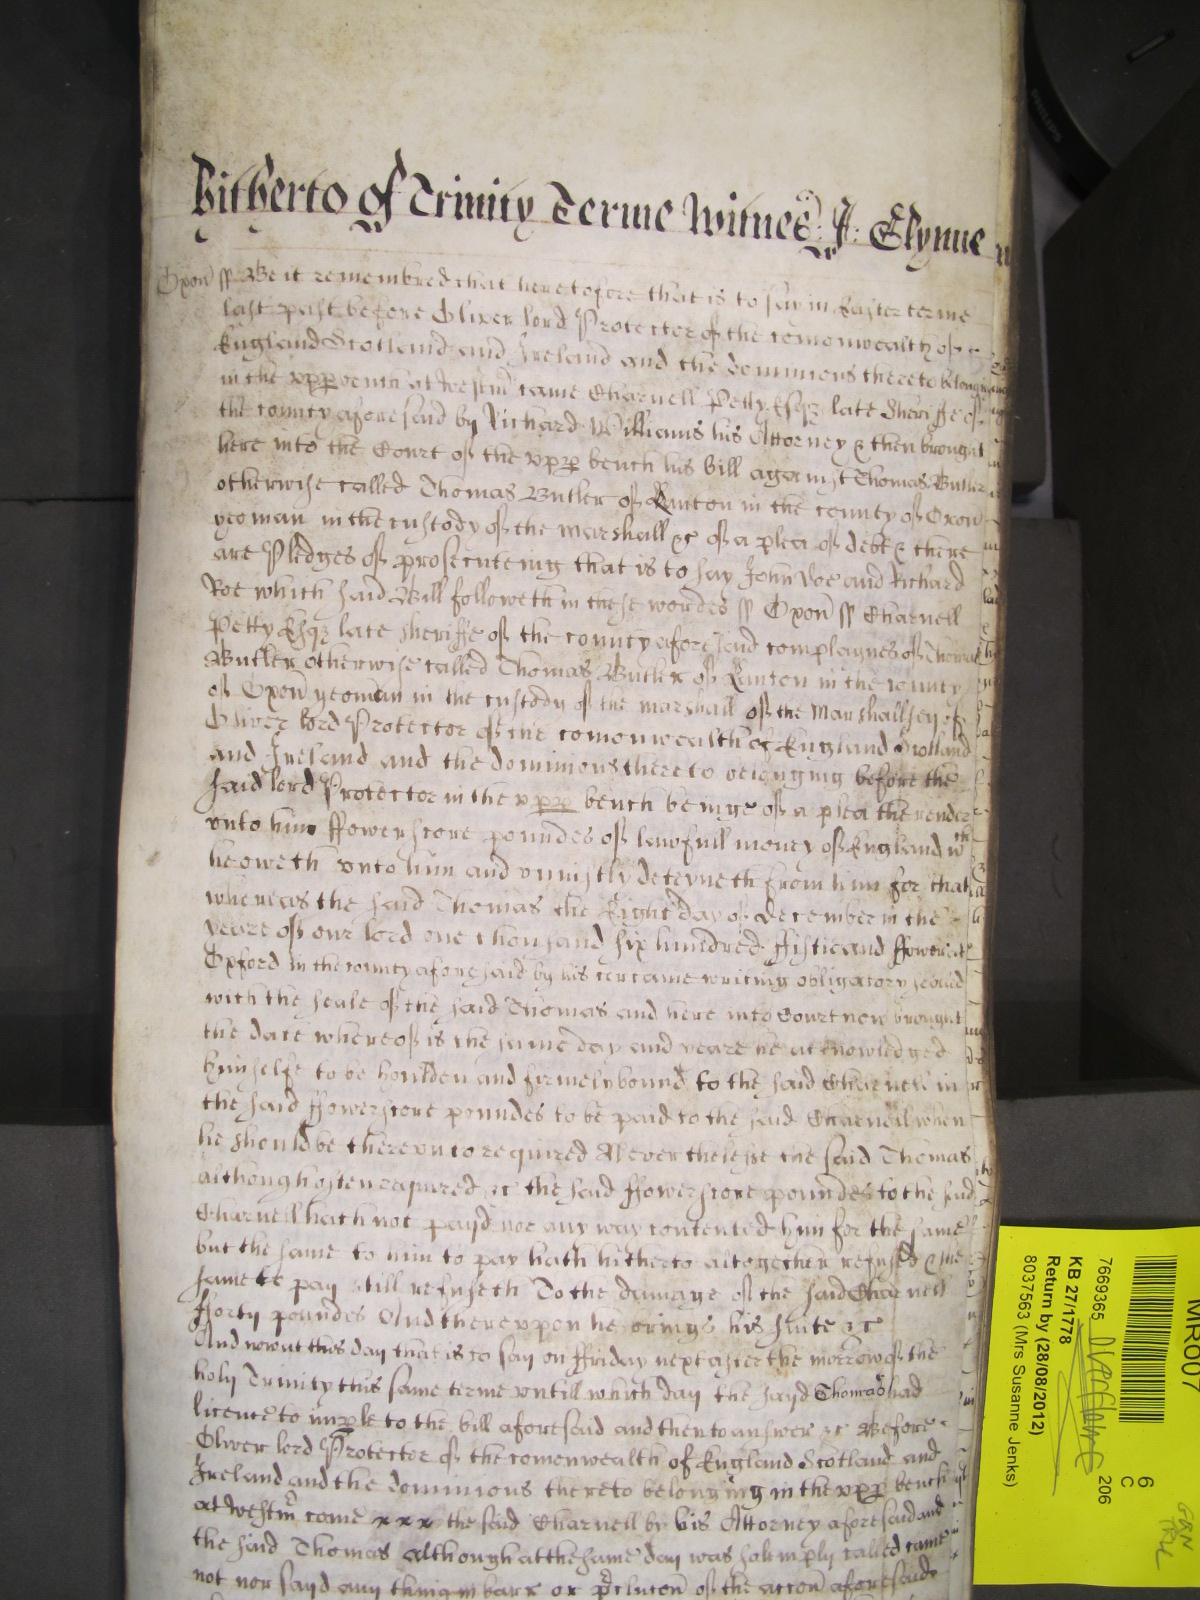 Hitherto of Trinity Terme Witnes: J: Glynne
Oxon ss Be it remembred that heretofore that is to say in Easter terme
last past before Oliver lord Protector of the comonwealth of
England Scotland and Ireland and the dominions thereto belonging
in the upper bench at Westm came Charnell Petty Esqr late Sheriffe of
the county aforesaid by Richard Williams his Attorney & then brought
here into the Court of the upper bench his bill against Thomas Butler
otherwise called Thomas Butler of in the county of Oxon
yeoman in the custody of the Marshall &c of a plea of debt & there
are Pledges of prosecuteing that is to say John Doe and Richard
Roe which said Bill followeth in these wordes ss Oxon ss Charnell
Petty Esqr late Sheriffe of the county aforesaid complaynes of Thomas
Butler otherwise called Thomas Butler of in the county
of Oxon yeoman in the custody of the marshall of the Marshallsey of
Oliver lord Protector of the comonwealth of England Scotland
and Ireland and the dominions thereto belonging before the
said lord Protector in the upper bench beinge of a plea the render
unto him ffowerscore poundes of lawfull money of England wch
he oweth unto him and uniustly deteyneth from him for that
whereas the said Thomas the Eight day of December in the
yeare of our lord one thousand six hundred fiftie and ffower att
Oxford in the county aforesaid by his certaine writing obligatory sealed
with the seale of the said Thomas and here into Court now brought
the date whereof is the same day and yeare he acknowledged
himselfe to be houlden and firmely bound to the said Charnell in
the said ffowerscore poundes to be paid to the said Charnell when
he should be thereunto required Neverthelesse the said Thomas
although often required &c the said ffowerscore poundes to the said
Charnell hath not payd nor any way contented him for the same
but the same to him to pay hath hitherto altogether refused & the
same to pay still refuseth To the damage of the said Charnell
fforty poundes And thereupon he brings his suite &c
And now att this day that is to say on ffriday next after the morrow of the
holy Trinity this same terme untill which day the sayd Thomas had
licence to imple to the bill aforesaid and then to answer &c Before
Oliver lord Protector of the comonwealth of England Scotland and
Ireland and the dominions thereto belonging in the upper bench
at Westm come x x x the said Charnell by his Attorney aforesaid and
the said Thomas although at the same day was solemply called came
not nor sayd any thing in barr or of the accon aforesaid
PHILIPS
MR007
6
C
206
7669365
KB 27/1778
Return by (28/08/2012)
8037563 (Mrs Susanne Jenks)